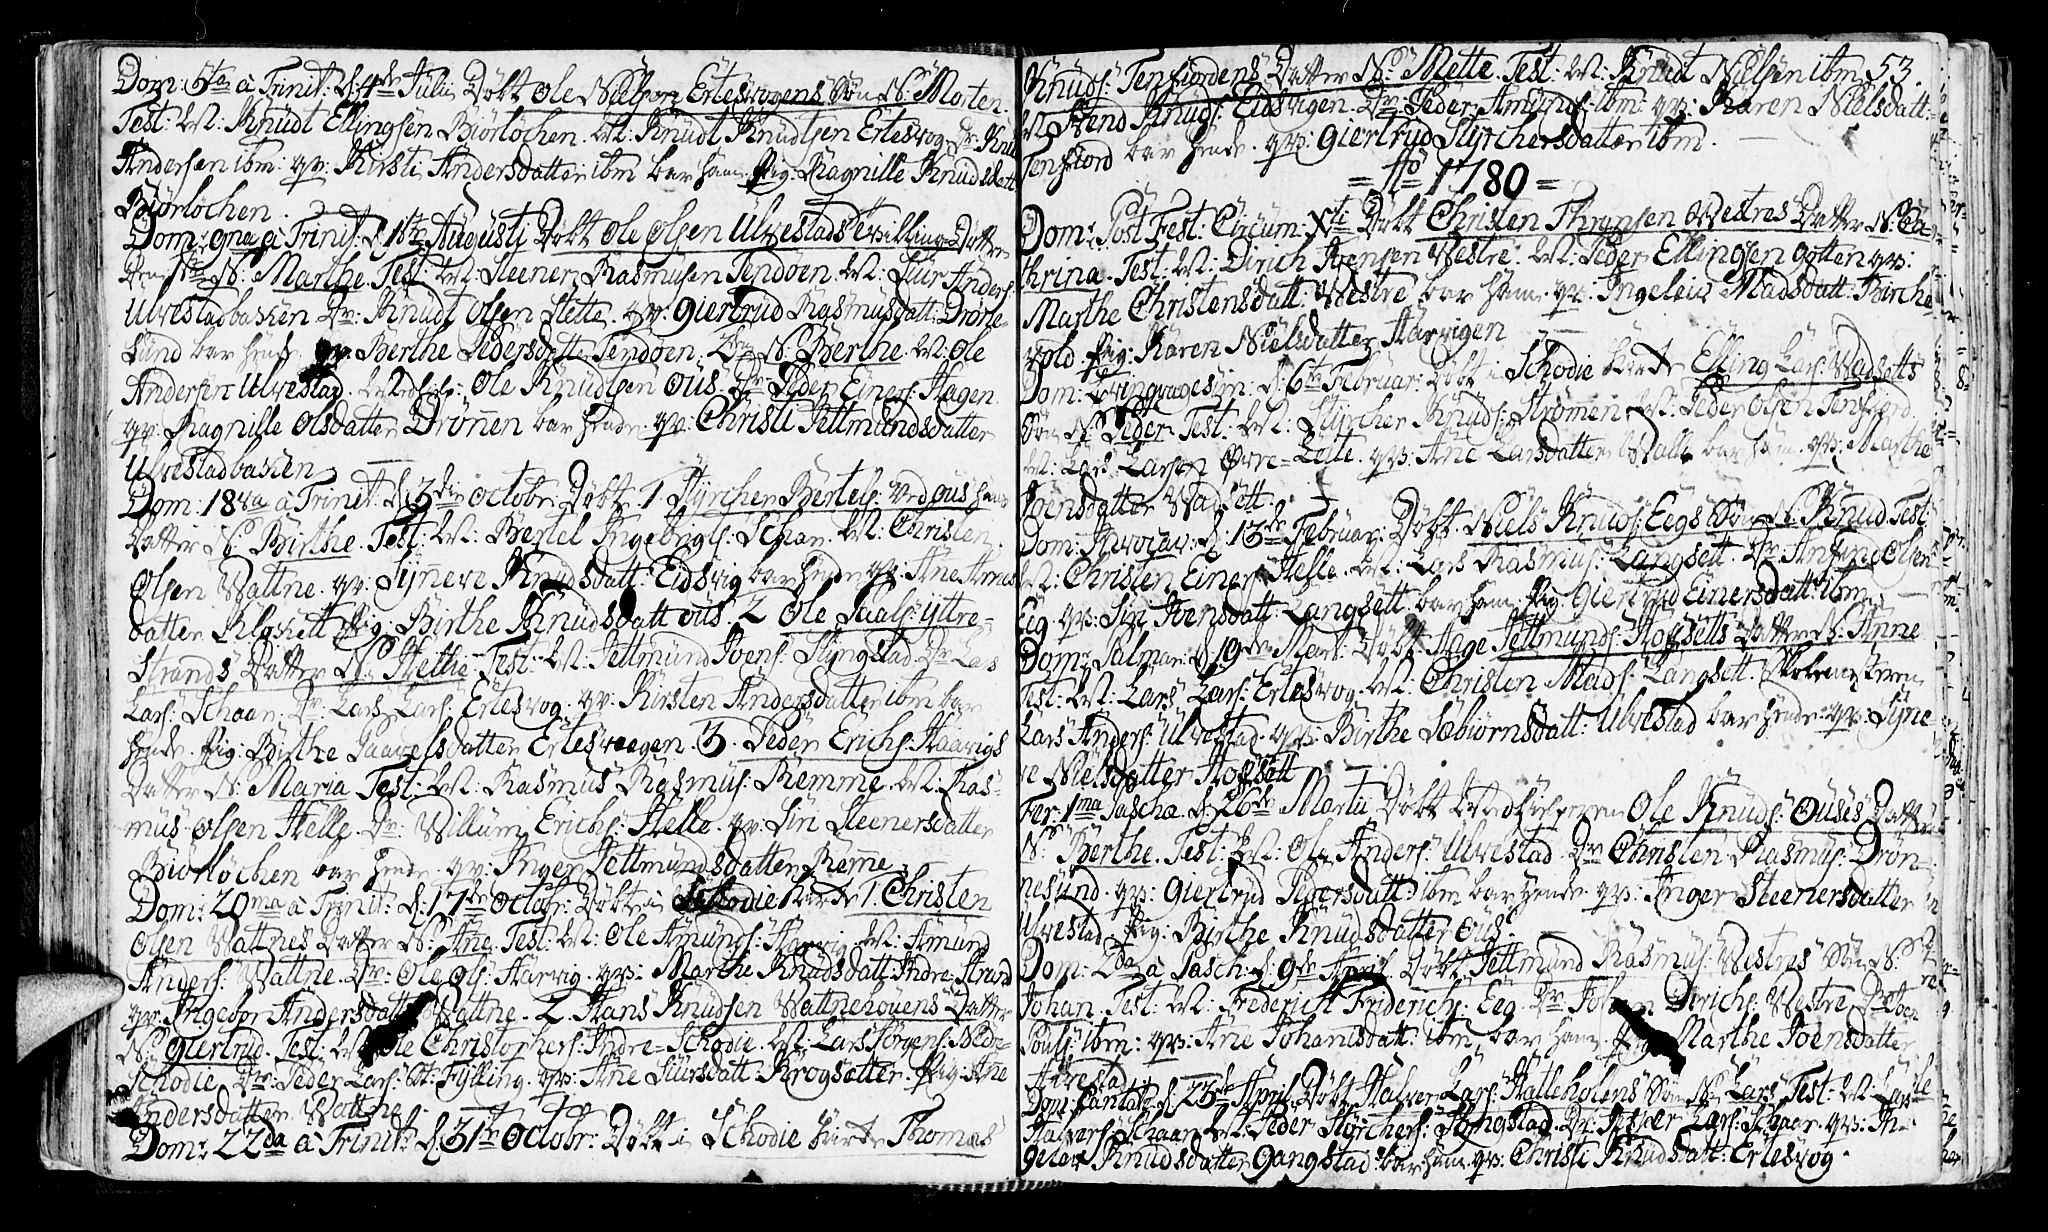 Dom: 5ta à Trinit: d: 4de Julii Döbt Ole Nielsen Ertesvogens Søn N: Morten.
Test: M: Knudt Ellingsen Biørløchen. M: Knudt Knudtsen Ertesvog. Dr: Knud
Andersen ibm: qv: Kirsti Andersdatter ibm bar ham. Pig: Ragnille Knudsdatt
Biørløchen.
Dom: 9na à Trinit: d: 1ste Augusti Døbt Ole Olsen Ulvestads Tvilling Døttre
N: Marthe. Test: M: Steener Rasmusen Tendöen. M: Siur Anders:
Ulvestadbakken Dr: Knudt Olsen Slette. qv: Giertrud Rasmusdatt: Drönne-
sund bar hende. qv: Berthe Pedersdatter Tendöen. 2den N: Berthe. M: Ole
Andersen Ulvestad. Ole Knudtsen Ous. Dr: Peder Einers: Hagen
qv: Ragnille Olsdatter Drönnen bar hende. qv: Christi Pettmundsdatter
Ulvestadbakken
Dom: 18va à Trinit: d: 3die Octobr: Döbt. 1 Styrcher Bertels: ved Ous hans
Datter N: Birthe. Test: M: Bertel Ingebrigts: Schaar. M: Christen
Olsen Vattne. qv: Synneve Knudsdatt: Eidsvig bar hende qv: Ane Amus
datter Kloksett Pig: Birthe Knudsdatt Ous. 2 Ole Paals: Yttre-
Strands Datter N: Methe. Test: M: Pettmund Joens: Slyngstad Dr: Lars
Lars: Schaar. Dr: Lars Lars: Ertesvog. qv: Kirsten Andersdatter ibm bar
hende. Pig: Birthe Paavelsdatter Ertesvaagen. 3. Peder Erichs: Haavigs
Datter N: Maria Test: M: Rasmus Rasmus: Remme. M: Ras-
mus Olsen Helle. Dr: Willum Erichs: Helle. qv: Siri Steenersdatter
Biørløchen bar hende. qv: Inger Pettmundsdatter Remme.
Dom: 20ma à Trinit: d: 17de Octobr: Döbt i Schodie Kirke 1. Christen
Olsen Vattnes Datter N: Ane. Test: M: Ole Amunds: Haavig. M: Amund
Anders: Vattne. Dr: Ole Ols: Haavig. qv: Marthe Knudsdatt: Indre-Strand
qv: Ingebor Andersdatt: Vattne. 2. Hans Knudsen Vattnehouens Datter
N: Giertrud. Test: M: Ole Christophers: Indre-Schodie. M: Lars Jörgens: Nedre-
Schodie. Dr: Peder Lars: Fylling. qv: Ane Siursdatt: Krogsætter. Pig: Ane
Andersdatter Vattne.
Dom: 22da à Trinit: d: 31te Octobr: Döbt i Schodie Kirke Thomas
Knuds: Tenfiordens Datter N: Mette. Test: M: Knudt Nielsen ibm 53.
M: Svend Knuds: Eidsvigen. Dr: Peder Amunds: ibm: qv: Karen Nielsdatt:
Tenfiord bar hende. qv: Giertrud Styrchersdatter ibm.
= Ao 1780 =
Dom: Post Fest: Circum: Xti Döbt Christen Thrynsen Westres Datter N: Ca-
thrina. Test: M: Dirich Jvensen Westre. M: Peder Ellingsen Gotten qv:
Marthe Christensdatt: Westre bar ham. qv: Ingeleiv Madsdatt: Kirche
vold Pig: Karen Nielsdatter Haavigen
Dom: Qvinqvagesim: d: 6te Februar: Döbt i Schodie Kirke Elling Lars: Vadsetts
Søn N: Peder. Test: M: Styrcher Knuds: Strømen M: Peder Olsen Tenfiord.
M: Lars Larsen Øvre-Leite. qv: Ane Larsdatter Walle bar ham. qv: Marthe
Joensdatter Vadsett.
Dom: Invocav: d: 13de Februar: Döbt Niels Knuds: Eegs Søn N: Knud. Test:
M: Christen Einers: Helle. M: Lars Rasmus: Langsett. Dr: Anfind Olsen
Eeg qv: Siri Joensdatt: Langsett bar ham. Pig: Giertrud Einersdatt: ibm
Dom: Palmar: d: 19de Mart: Döbt Aage Pettmunds: Hofsetts Datter N: Anne
Test: M: Lars Lars: Ertesvog. M: Christen Mads: Langsett. Skolemesteren
Lars Anders: Ulvestad. qv: Birthe Sæbiørnsdatt: Ulvestad bar hende. qv: Syne
ve Nielsdatter Hofsett
Fer: 1ma Pascha d: 26de Martii Döbt Ole Knuds: Ouses Datter
N: Berthe. Test: M: Ole Anders: Ulvestad. Dr: Christen Rasmus: Drön-
nesund. qv: Giertrud Pedersdatt: ibm bar hende. qv: Inger Steenersdatter
Ulvestad. Pig: Birthe Knudsdatter Ous.
Dom: 2da à Pasch: d: 9de April Döbt Pettmund Rasmus: Westres Søn N:
Johan Test: M: Frederich Friderichs: Eeg Dr: Johan Dirichs: Westre Dr: Joen
Pouls: ibm: qv: Ane Johansdatt: ibm bar ham. Pig: Marthe Joensdatter
Havrestad
Dom: Cantate d: 23de April Döbt Halver Lars: Hatleholens Søn N: Lars Test: M: Lars
Halvers: Schaar M: Peder Styrchers: Slyngstad. Dr: Jesper Lars: Schaar qv: In-
gelav Knudsdatter Gangstad bar ham. qv: Christi Knudsdatt: Ertesvog.